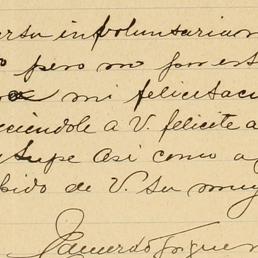 involuntariam
pero no por est
mi felicitaci
ciéndole a V. felicite a
supe asi como a
bido de V. su muy